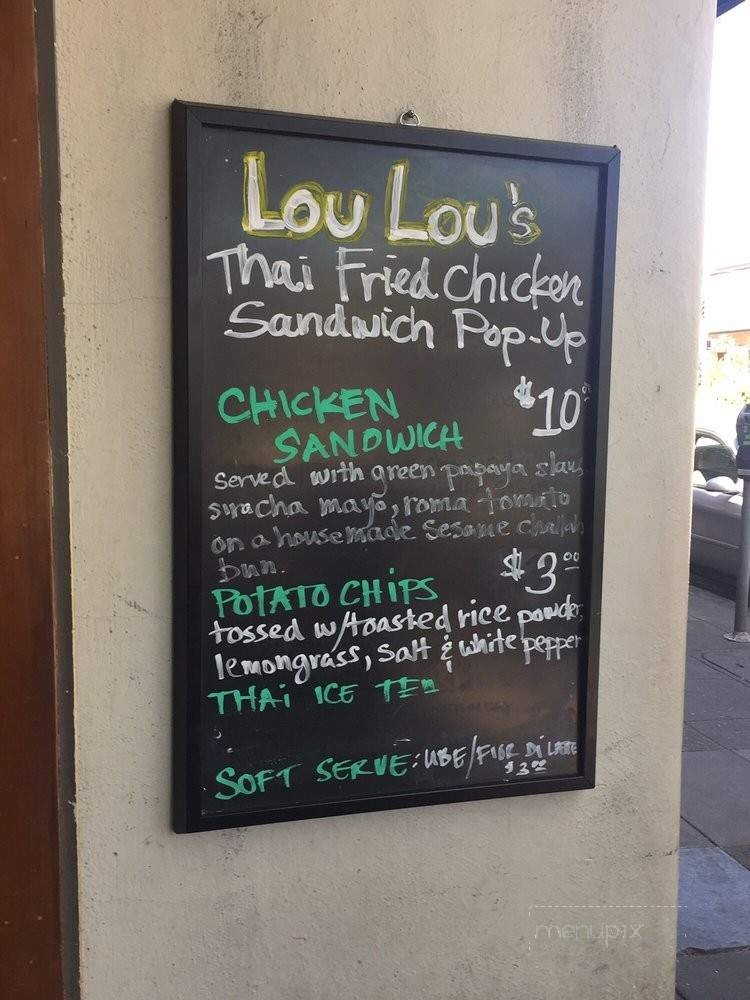 Lou Lou's
Thai Fried Chicken
Sandwich Pop-Up
CHICKEN $10.00
SANDWICH
served with green papaya slaw,
siracha mayo, roma tomato
on a housemade sesame challah
bun. $3.00
POTATO CHIPS
tossed w/toasted rice powder,
lemongrass, salt & white pepper
THAI ICE TEA
SOFT SERVE: UBE/FIOR Di LATTE
$3.00
menupix